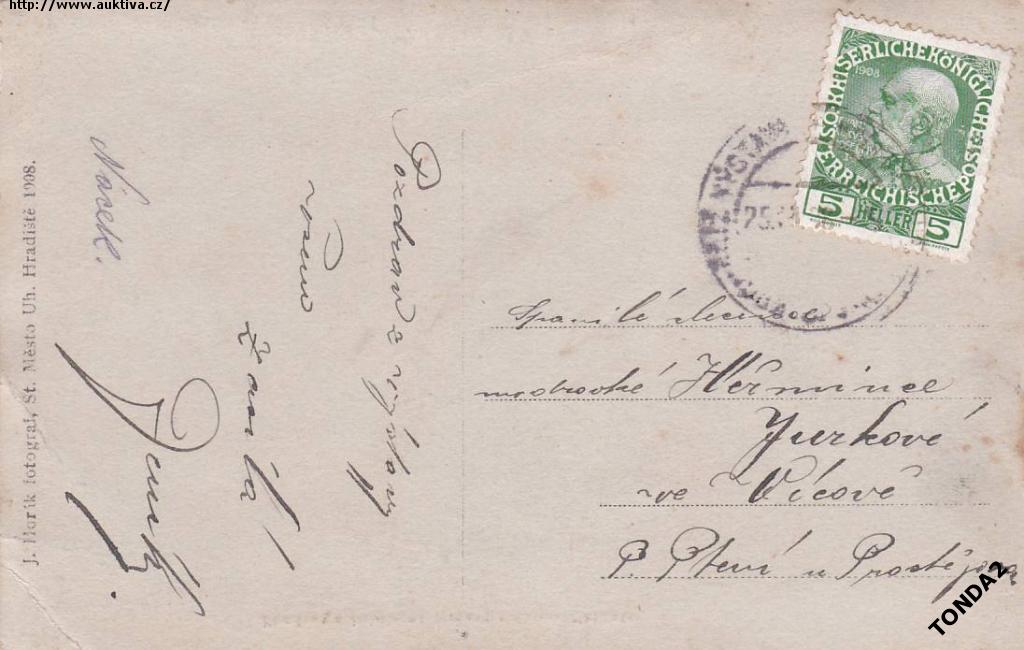 http://www.auktiva.cz/
J. Horík fotograf, St. Město Uh. Hradiště 1908.
Pozdrav z výstavy
všem
1908
KAISERLICHEKÖNIGLICHE
ÖSTERREICHISCHEPOST
5 HELLER 5
25.
Spanilé slečince
modrooké Heřmince
Jurkové
ve Vícově
P. Ptení u Prostějova
TONDA2